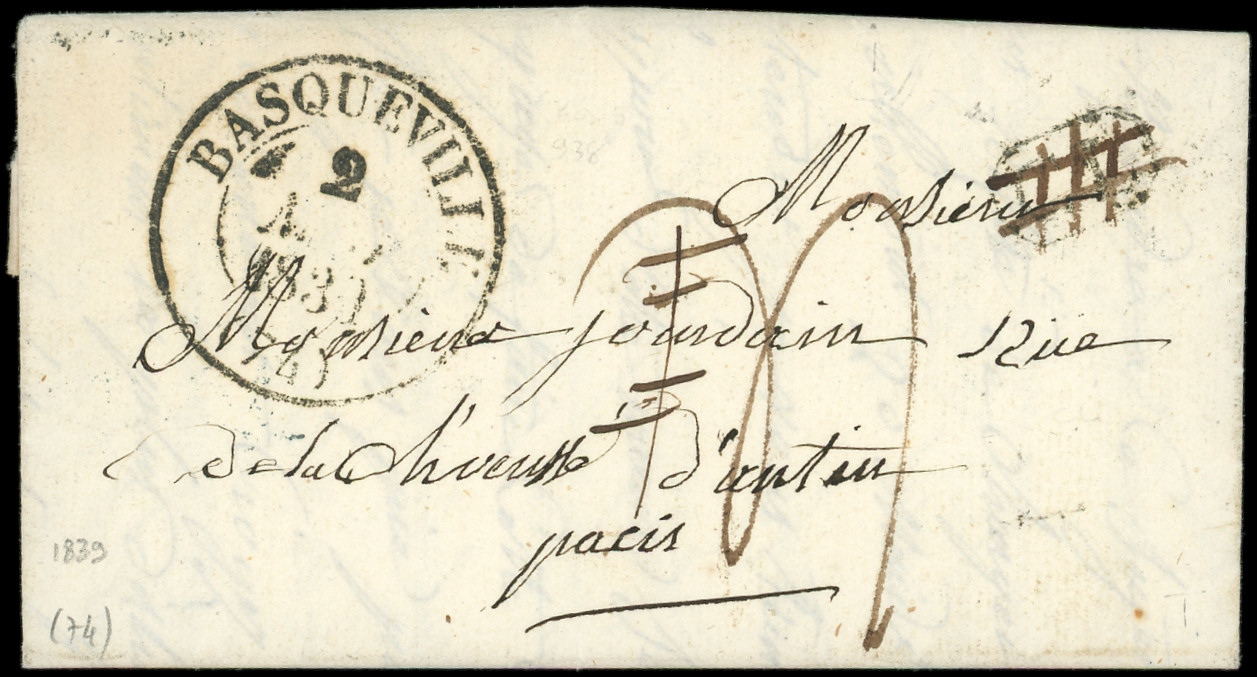 BASQUEVILLE
2
1839
(74)
Monsieur
Monsieur jourdain Rue
de la Chaussé d'antin
paris
1839
(74)